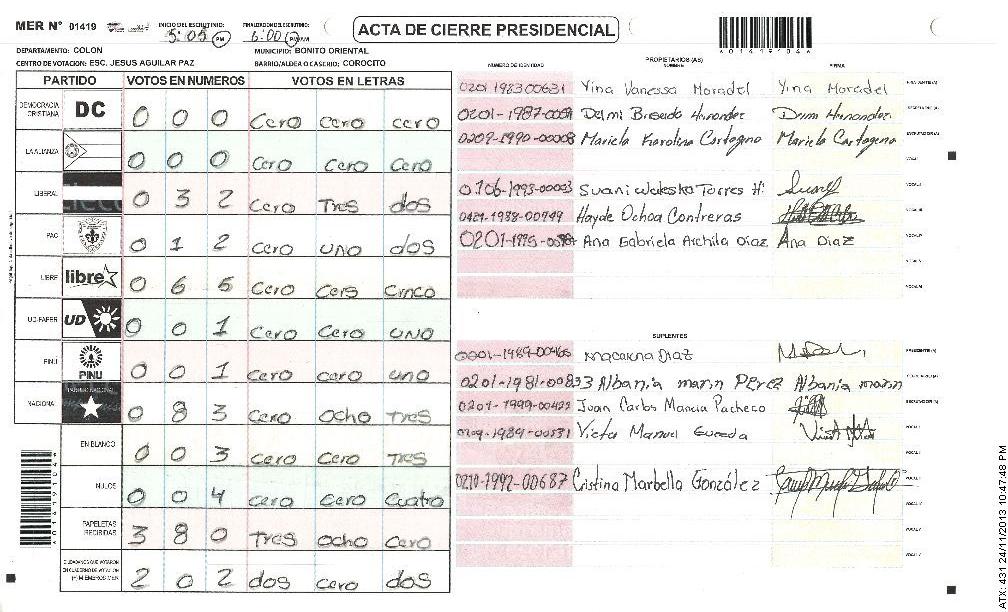 MER N° 01419 INICIO DEL ESCRUTINIO: 5:05 PM FINALIZACION DEL ESCRUTINIO: 6:00 PM ACTA DE CIERRE PRESIDENCIAL
6014191046
DEPARTAMENTO: COLON MUNICIPIO: BONITO ORIENTAL
CENTRO DE VOTACION: ESC. JESUS AGUILAR PAZ BARRIO/ALDEA O CASERIO: COROCITO
PARTIDO VOTOS EN NUMEROS VOTOS EN LETRAS
DEMOCRACIA CRISTIANA DC 0 0 0 cero cero cero
LA ALIANZA 0 0 0 cero cero cero
LIBERAL 0 3 2 cero Tres dos
PAC 0 1 2 cero uno dos
LIBRE libre 0 6 5 cero ceis cinco
UD-FAPER UD 0 0 1 cero cero uno
PINU PINU 0 0 1 cero cero uno
NACIONAL 0 8 3 cero ocho Tres
EN BLANCO 0 0 3 cero cero Tres
NULOS 0 0 4 cero cero cuatro
PAPELETAS RECIBIDAS 3 8 0 Tres ocho cero
CIUDADANOS QUE VOTARON 2 0 2 dos cero dos
NUMERO DE IDENTIDAD PROPIETARIOS (AS) NOMBRE FIRMA
0201 1983 00631 Yina Vanessa Moradel Yina Moradel
0201-1987- Delmi
0209-1990-00008 Mariela Karolina Cartagena Mariela Cartagena
0106-1993-00003 Suani Waleska Torres H.
0421-1988-00999 Hayde Ochoa Contreras
0201-1995- Ana Gabriela Archila Diaz Ana Diaz
SUPLENTES
0201-1989-00465 Macarena Diaz
0201-1981-00833 Albania marin Perez Albania marin
0201-1999-00422 Juan Carlos Mancia Pacheco
0209-1989-00531 Victor Manuel
0210-1992-00687 Cristina Marbella González
ATX: 431 24/11/2013 10:47:48 PM